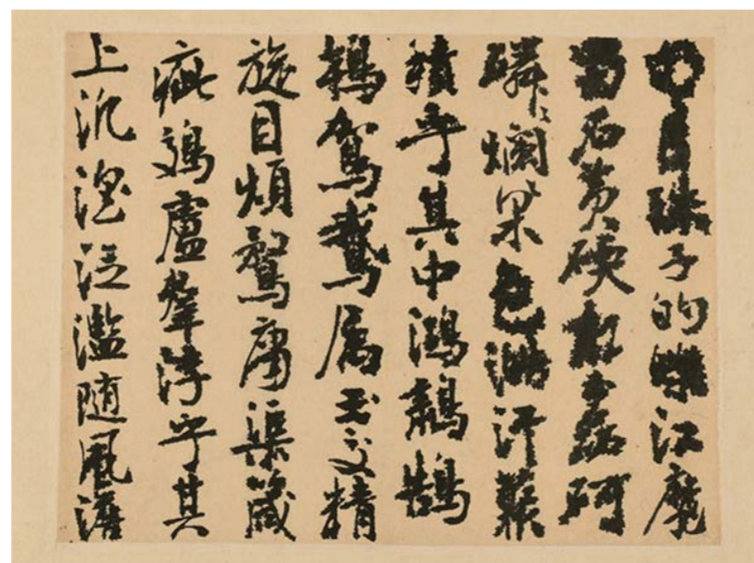 明月珠子的皪江靡
蜀石黄碝磊砢
磷〻爛〻采色澔汗藂
積乎其中鴻鷫鵠
鴇鴐鵞属玉交精
旋目煩鶩庸渠箴
疵鵁盧羣浮乎其
上汎淫泛濫随風澹